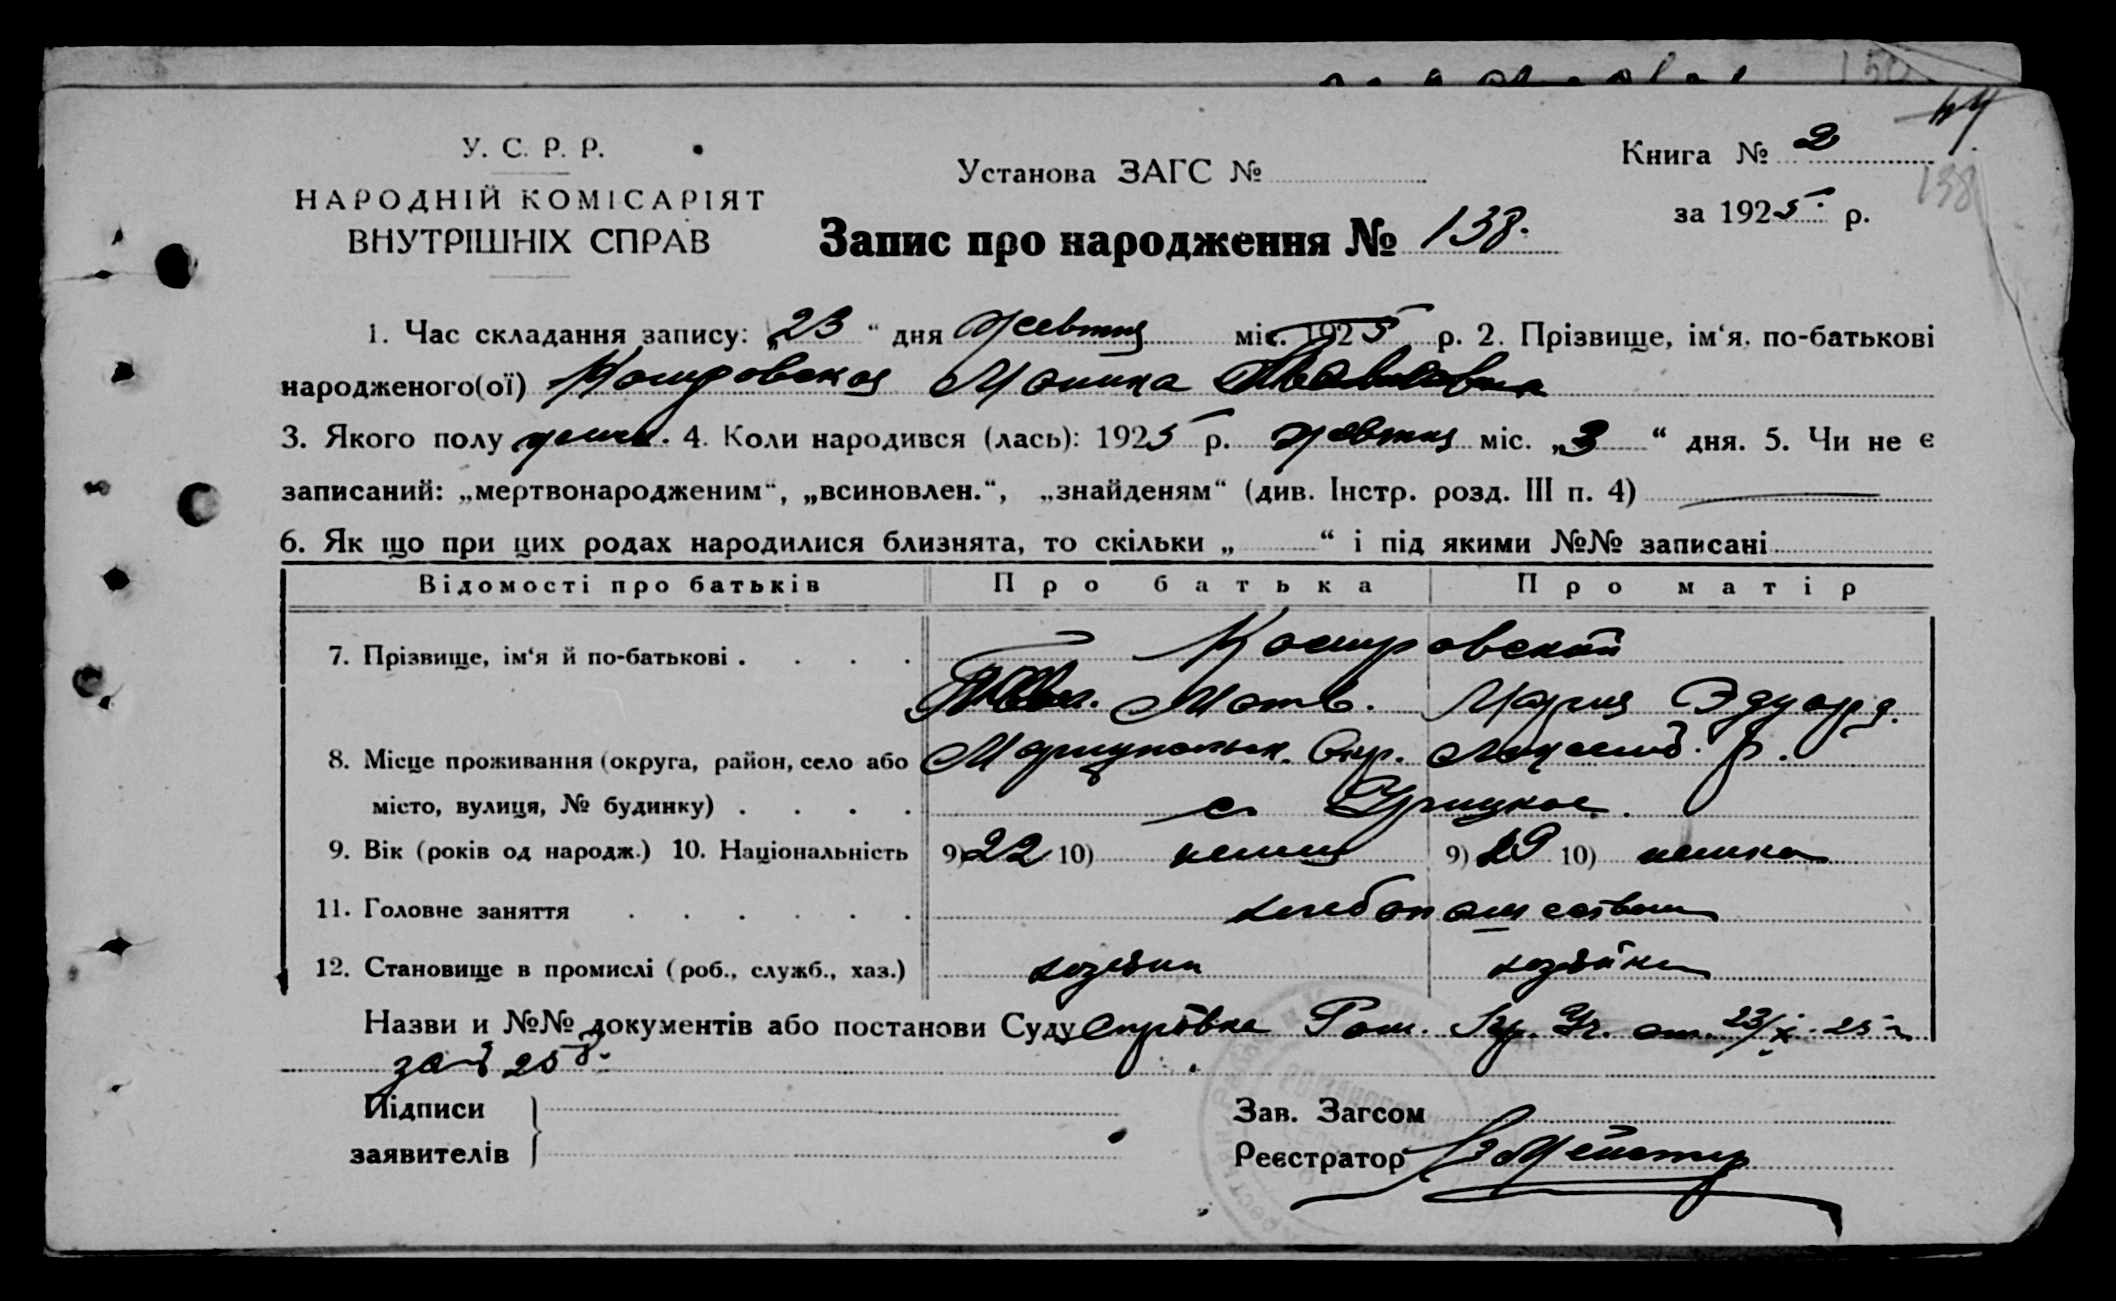 У. С. Р. Р.
НАРОДНІЙ КОМІСАРІЯТ
ВНУТРІШНІХ СПРАВ
Установа ЗАГС №
Запис про народження № 138.
Книга № 2
за 1925 р.
138
1. Час складання запису: „23“ дня Жевтня міс. 1925 р. 2. Прізвище, ім‘я, по-батькові
народженого(ої)
3. Якого полу женск. 4. Коли народився (лась): 1925 р. жевтня міс. „3“ дня. 5. Чи не є
записаний: „мертвонародженим“, „всиновлен.“, „знайденям“ (див. Інстр. розд. III п. 4)
6. Як що при цих родах народилися близнята, то скільки „ “ і під якими №№ записані
Відомості про батьків Про батька Про матір
7. Прізвище, ім‘я й по-батькові . . . .
Мария Эдуард.
8. Місце проживання (округа, район, село або Мариупольск. Окр.
місто, вулиця, № будинку) . . . . с. Урицкое.
9. Вік (років од народж.) 10. Національність 9) 22 10) немец 9) 29 10) немка
11. Головне заняття . . . . . . хлебопашеством
12. Становище в промислі (роб., служб., хаз.) хозяин хозяйка
Назви и №№ документів або постанови Суду Справка от 23/X. 25 г.
за №
Підписи
заявителів
Зав. Загсом
Реєстратор